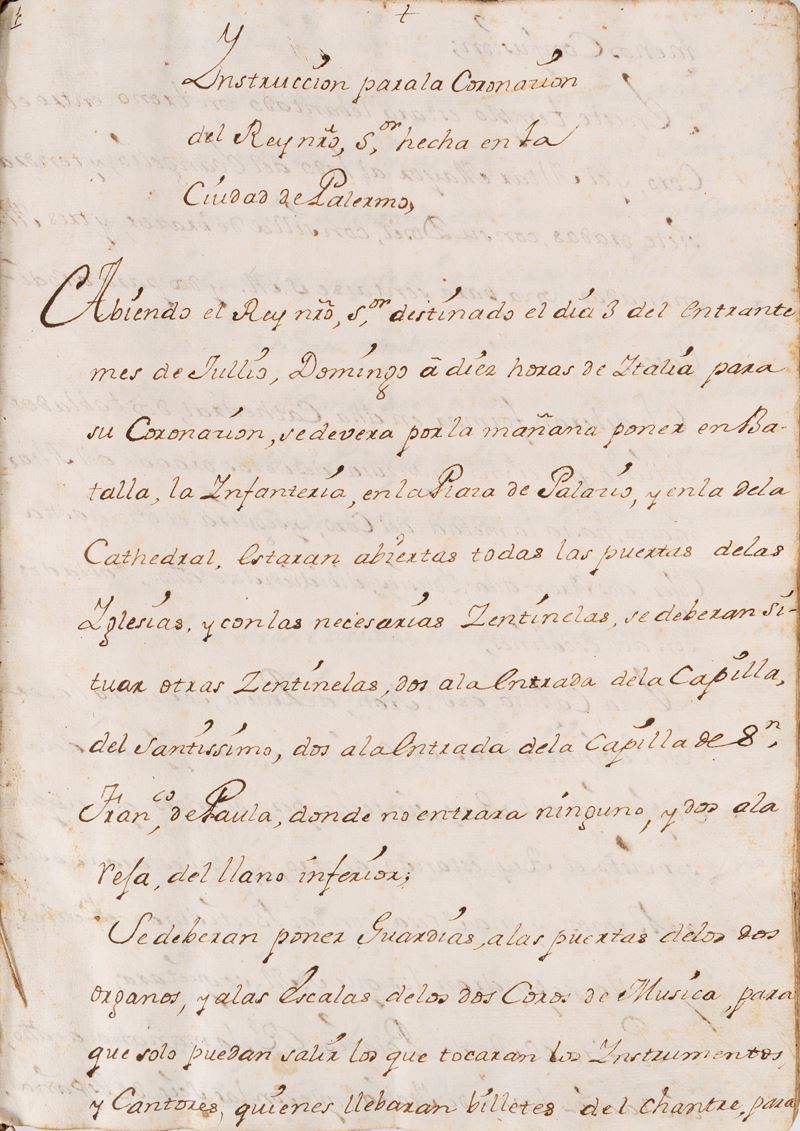 +
Ynstruccion para la Coronacion
del Rey nrõ, S,or hecha en la
Ciudad de Palermo,
Abiendo el Rey nrõ, S,or destinado el dia 3 del entrante
mes de Jullio, Domingo â diez horas de Italia para
su Coronacion, se devera por la mañana poner en Ba-
talla, la Infanteria, en la Plaza de Palacio, y en la de la
Cathedral, estaran abiertas todas las puertas de las
Yglesias, y con las necesarias Zentinelas, se deberan si-
tuar otras Zentinelas, dos a la Entrada de la Capilla,
del Santissimo, dos a la Entrada de la Capilla de Sn,
Fran,co de Paula, donde no entrara ninguno, y dos a la
resa, del llano inferior;
Se deberan poner Guardias, a las puertas de los dos
organos, y a las Escalas de los dos Coros de Musica, para
que solo puedan salir los que tocaran los Instrumentos,
y Cantores, quienes llebaran billetes del Chantre, para